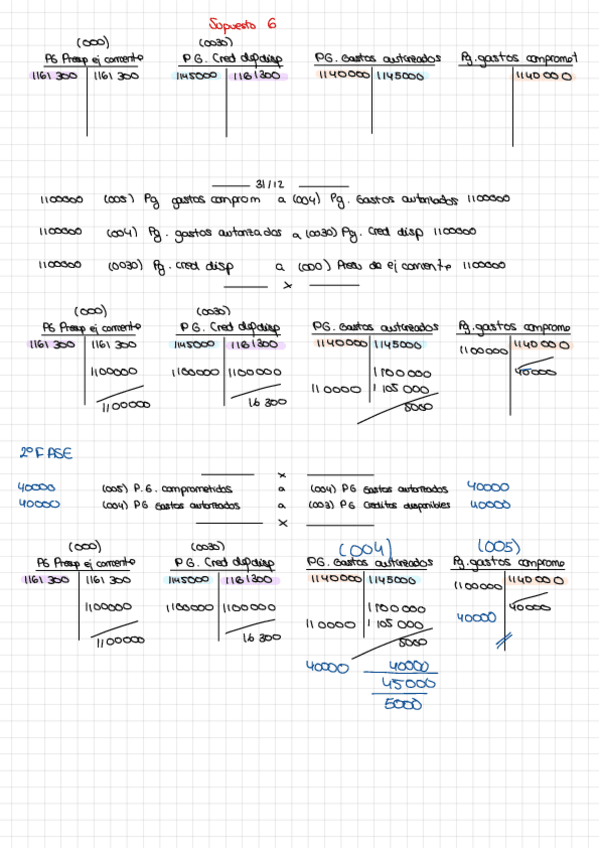 Supuesto 6
(000) (0030)
PG Presp ej corriente PG. Cred disp disp PG. Gastos autorizados Pg. gastos compromet
1161 300 1161 300 1145000 1161300 1140000 1145000 1140 000
31/12
1100000 (005) Pg gastos comprom a (004) Pg. Gastos autorizados 1100000
1100000 (004) Pg. gastos autorizados a (0030) Pg. Cred disp 1100000
1100000 (0030) Pg. cred disp a (000) Presu de ej corriente 1100000
x
(000) (0030)
PG Presp ej corriente PG. Cred disp disp PG. Gastos autorizados Pg. gastos comprome
1161 300 1161 300 1145000 1161300 1140000 1145000 1140 000
1100000 1100000 1100000 1100000 1100000 40000
1100000 16 300 110000 1 105 000
5000
2º FASE
x
40000 (005) P.G. comprometidos a (004) PG Gastos autorizados 40000
40000 (004) PG Gastos autorizados a (003) PG Creditos disponibles 40000
x
(000) (0030) (004) (005)
PG Presp ej corriente PG. Cred disp disp PG. Gastos autorizados Pg. gastos comprome
1161 300 1161 300 1145000 1161300 1140000 1145000 1140 000
1100000 1100000 1100000 1100000 1100000 40000
1100000 16 300 110000 1 105 000 40000
5000
40000 40000
45000
5000